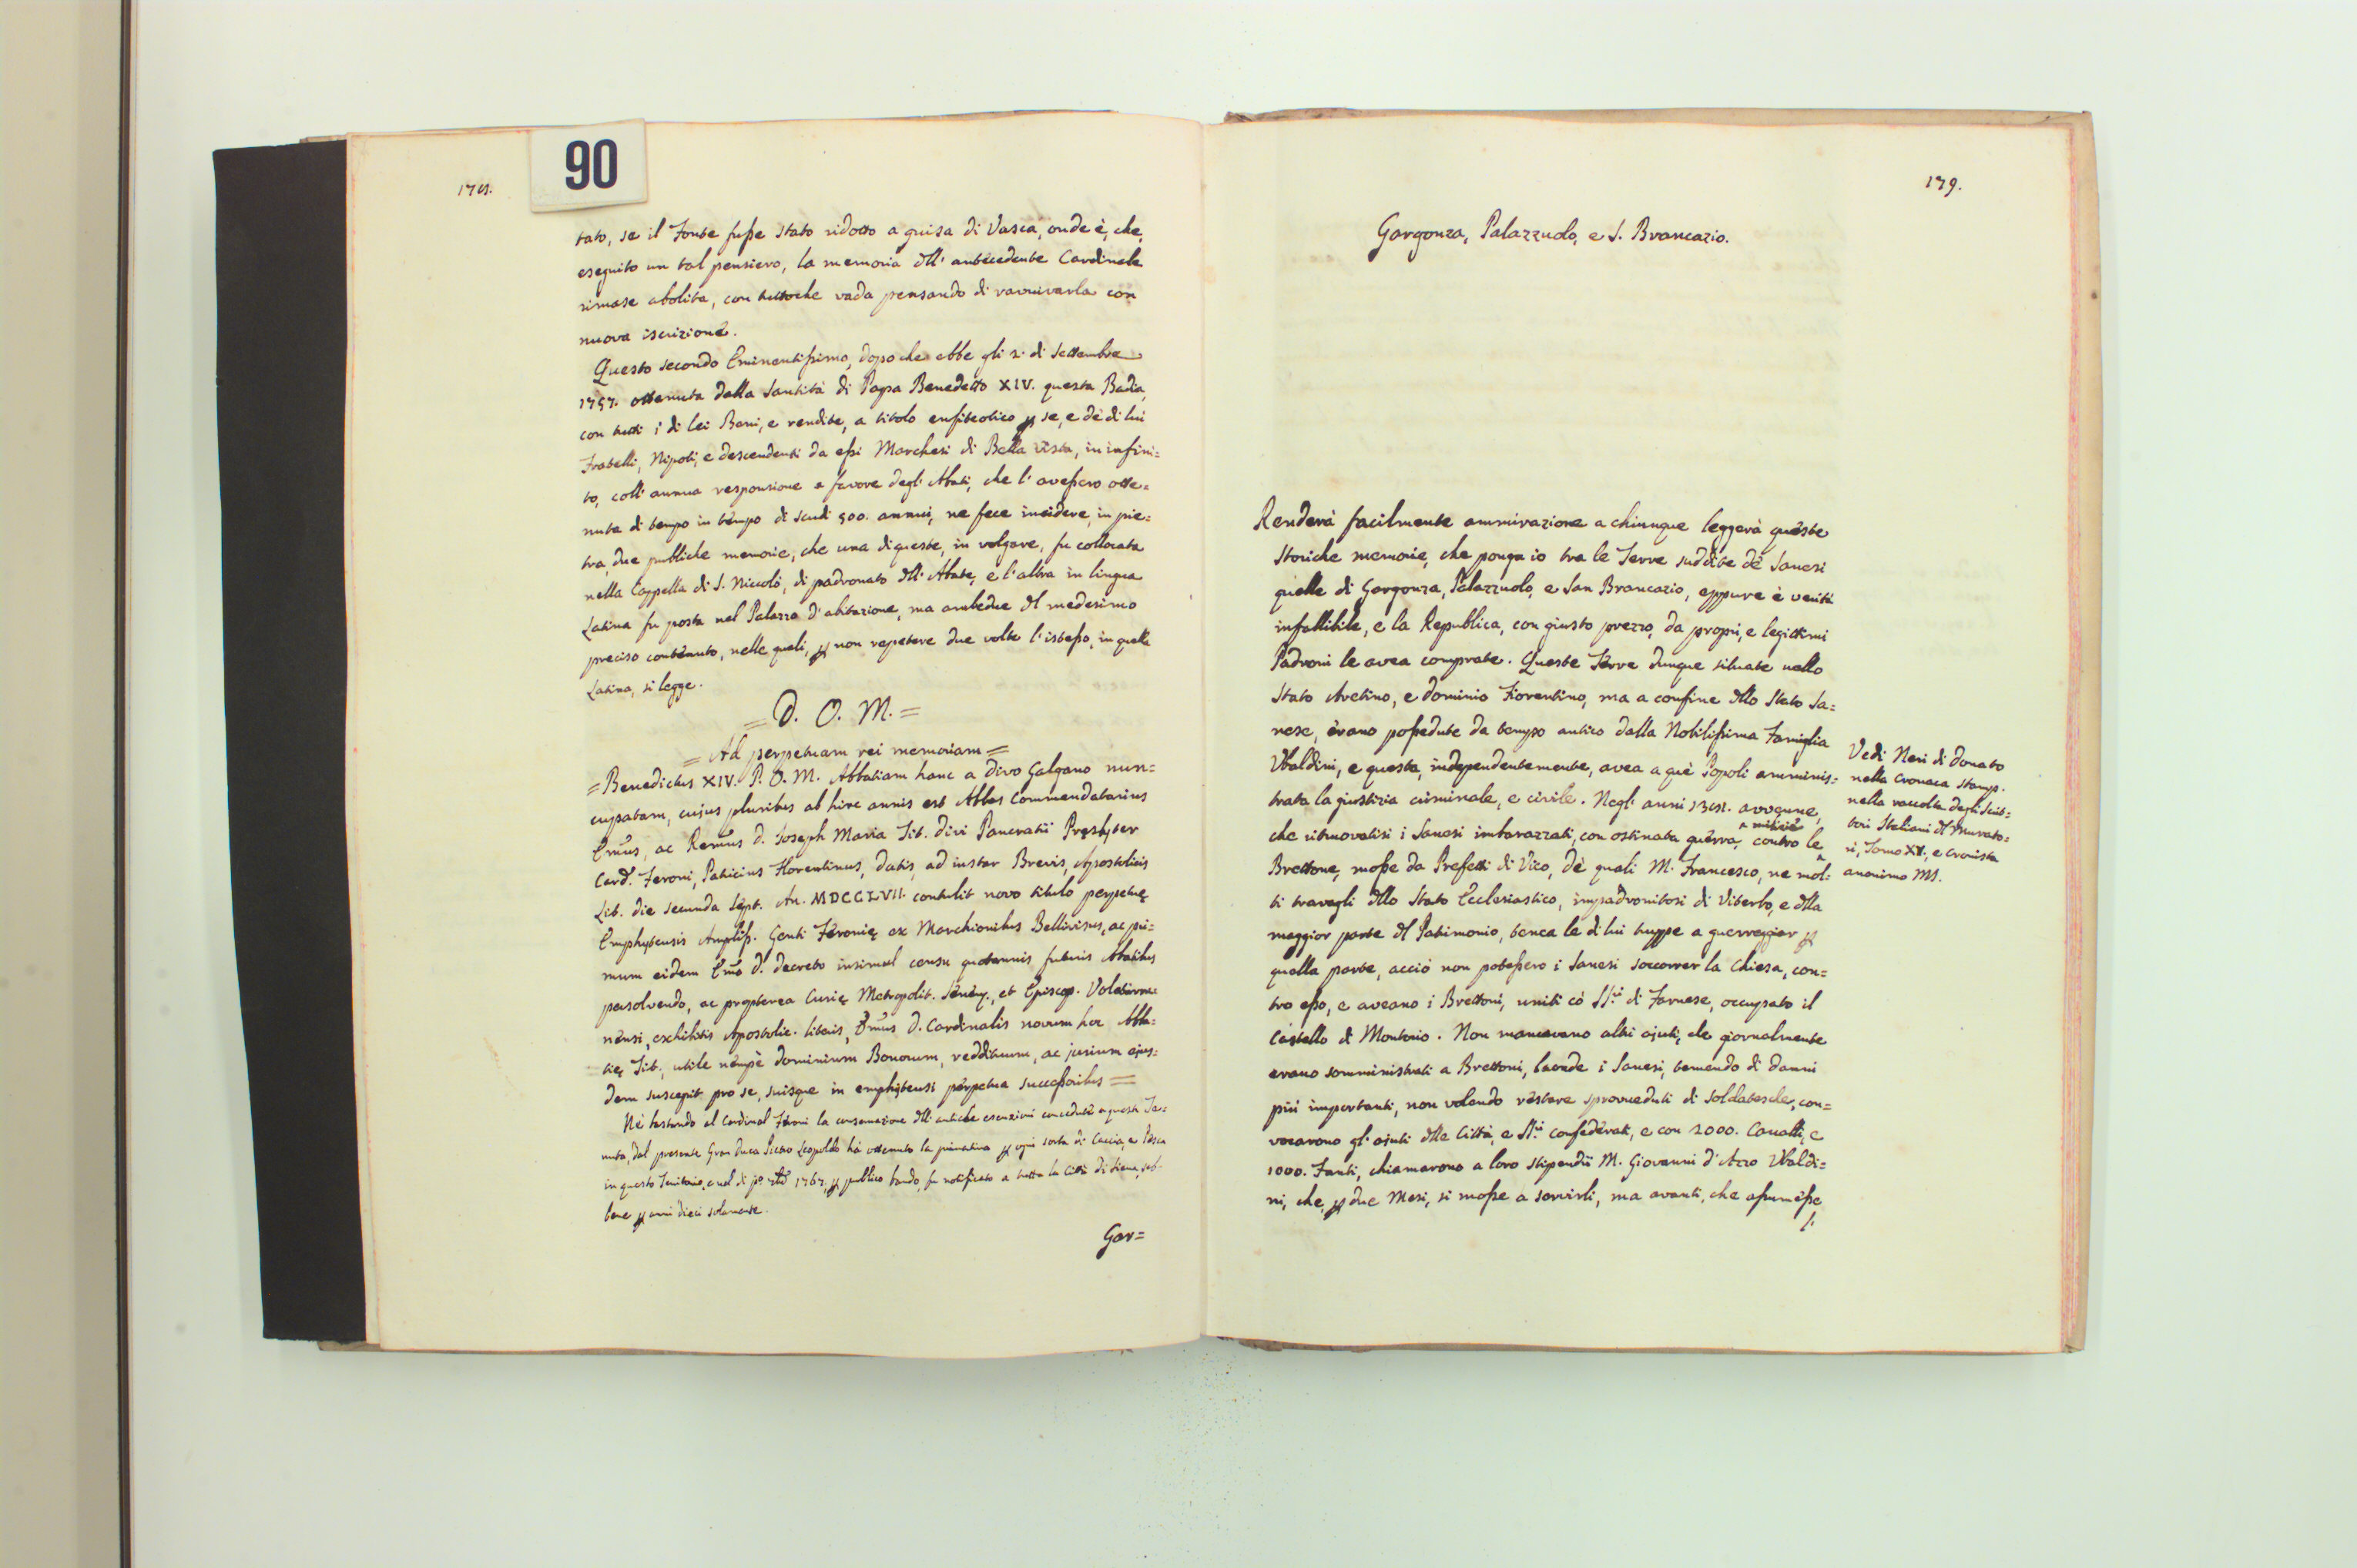 178.
90
tato, se il Fonte fusse stato ridotto a guisa di Vasca, onde è, che,
eseguito un tal pensiero, la memoria dll' antecedente Cardinale
rimase abolita, con tuttoche vada pensando di ravvivarla con
nuova iscrizione.
Questo secondo Eminentissimo, dopo che ebbe gli 2. di Settembre
1757. ottenuta dalla Santità di Papa Benedetto XIV. questa Badia,
con tutti i di lei Beni, e rendite, a titolo enfiteotico p se, e dè di lui
Fratelli, Nipoti, e descendenti da essi Marchesi di Bella vista, in infini=
to, coll' annua responsione a favore degl' Abati, che l' avessero otte=
nuta di tempo in tempo di scudi 500. annui, ne fece incidere, in pie=
tra, due publiche memorie, che una di queste, in volgare, fu collocata
nella Cappella di S. Niccolò, di padronato dll' Abate, e l' altra in lingua
Latina fu posta nel Palazzo d' abitazione, ma ambedue dl medesimo
preciso contenuto, nelle quali, p non repetere due volte l' istesso, in quella
Latina, si legge.
= D. O. M. =
= Ad perpetuam rei memoriam =
= Benedictus XIV. P. O. M. Abbatiam hanc a Divo Galgano nun=
cupatam, cujus pluribus ab hinc annis est Abbas Commendatarius
Emus, ac Remus D. Joseph Maria Tit. Divi Pancratii Presbyter
Card. Feroni, Patricius Florentinus, datis, ad instar Brevis, Apostolicis
Lit. die secunda Sept. An. MDCCLVII. contulit novo titulo perpetuę
Emphytensis Ampliss. Genti Feronię ex Marchionibus Bellivisus, ac pri=
mum eidem Emo D. decreto insimul censu quotannis futuris Abatibus
persolvendo, ac propterea Curię Metropolit. Senen., et Episcop. Volaterra=
nensi, exhibitis Apostolic. literis, Emus D. Cardinalis novum hoc Abba=
tię Tit., utile nempè dominium Bonorum, reddituum, ac jurium ejus=
dem suscepit pro se, suisque in emphiteusi perpetua successoribus =
Nè bastando al Cardinal Feroni la conservazione dll' antiche esenzioni concedute a questa Te=
nuta, dal presente Gran Duca Pietro Leopoldo hà ottenuto la privativa p ogni sorta di Caccia, e Pesca
in questo Territorio, e nel di po 7bre 1767, p publico bando, fu notificato a tutta la Città di Siena, seb=
bene p anni dieci solamente.
Gar=
179.
Gargonza, Palazzuolo, e S. Brancazio.
Renderà facilmente ammirazione a chiunque leggerà queste
Storiche memorie, che ponga io tra le Terre suddite dè Sanesi
quelle di Gargonza, Palazzuolo, e San Brancazio, eppure è verità
infallibile, e la Republica, con giusto prezzo, da propri, e legittimi
Padroni le avea comprate. Queste Terre dunque situate nello
Stato Aretino, e dominio Fiorentino, ma a confine dllo Stato Sa=
nese, erano possedute da tempo antico dalla Nobilissima Famiglia
Ubaldini, e questa, independentemente, avea a què Popoli amminis=
trata la giustizia criminale, e civile. Negl' anni 1381. avvenne,
che ritrovatisi i Sanesi imbarazzati, con ostinata guerra, contro le milizie
Brettone, mosse da Prefetti di Vico, dè quali M. Francesco, ne mol=
ti travagli dllo Stato Ecclesiastico, impadronitosi di Viterbo, e dlla
maggior parte dl Patrimonio, tenea le di lui truppe a guerreggiar p
quella parte, acciò non potessero i Sanesi soccorrer la Chiesa, con=
tro esso, e aveano i Brettoni, uniti cò SS.ri di Farnese, occupato il
Castello di Montorio. Non mancavano altri ajuti, che giornalmente
erano somministrati a Brettoni, laonde i Sanesi, temendo di danni
più importanti, non volendo restare sproveduti di Soldatesche, con=
vocarono gl' ajuti dlle Città, e SS.ri confederati, e con 2000. Cavalli, e
1000. Fanti, chiamarono a loro stipendii M. Giovanni d' Azzo Ubaldi=
ni, che, p due Mesi, si mosse a servirli, ma avanti, che assumesse
l'
Vedi Neri di Donato
nella Cronaca Stamp.
nella raccolta degli Scrit=
tori Italiani dl Murato=
ri, Tomo XV., e Cronista
anonimo MS.